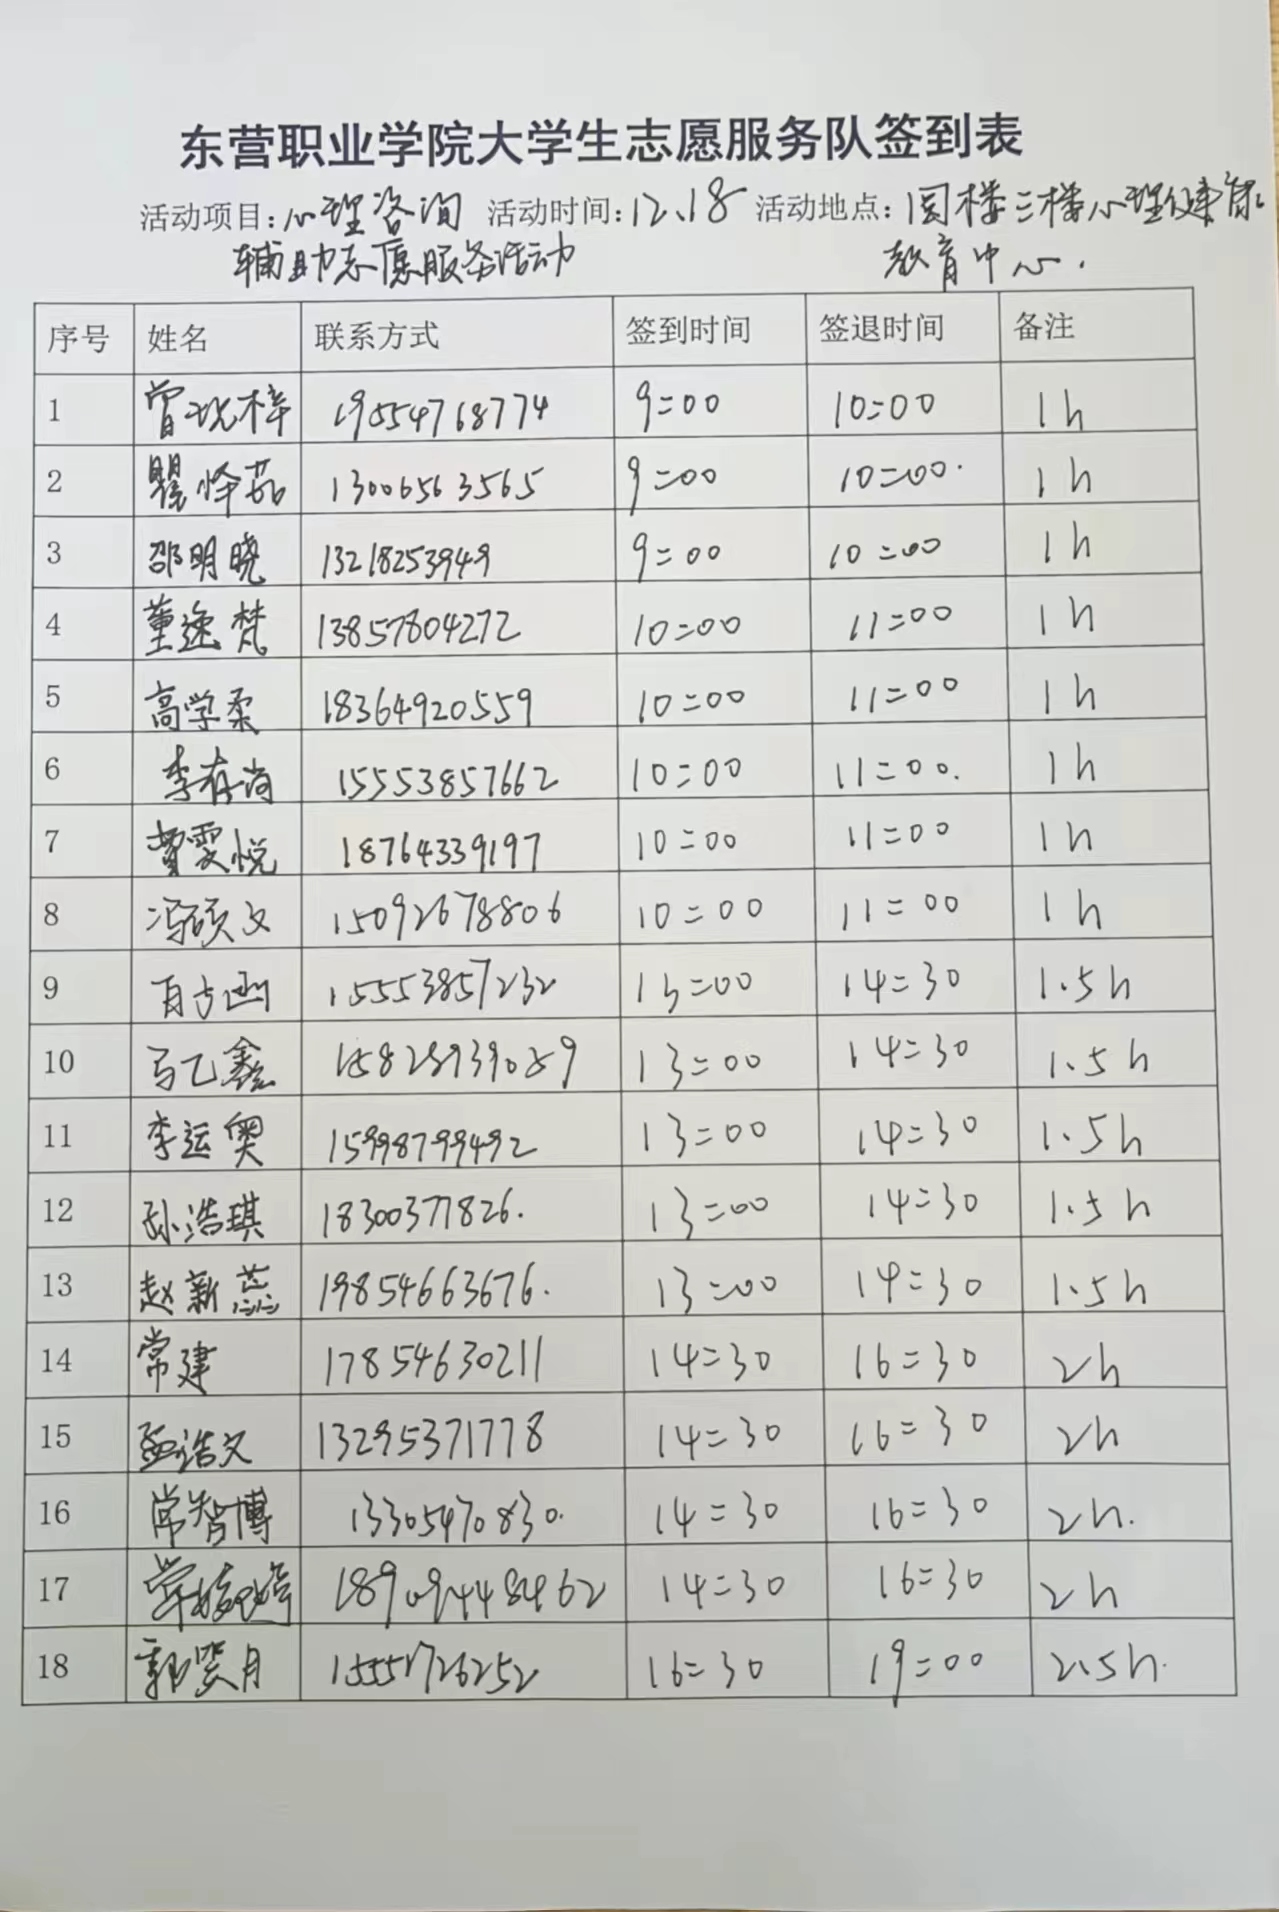 东营职业学院大学生志愿服务队签到表
活动项目:心理咨询 活动时间:12.18 活动地点:圆楼三楼心理健康
辅助志愿服务活动 教育中心.
序号 姓名 联系方式 签到时间 签退时间 备注
1 19554768774 9:00 10:00 1h
2 13006563565 9:00 10:00. 1h
3 邵明晓 13218253949 9:00 10:00 1h
4 董逸梵 13857804272 10:00 11:00 1h
5 高学柔 18364920559 10:00 11:00 1h
6 李有尚 15553857662 10:00 11:00. 1h
7 费雯悦 18764339197 10:00 11:00 1h
8 冯硕文 15092678806 10:00 11:00 1h
9 15553857232 13:00 14:30 1.5h
10 马乙鑫 13:00 14:30 1.5h
11 李运奥 15998799492 13:00 14:30 1.5h
12 孙浩琪 18300377826. 13:00 14:30 1.5h
13 赵新蕊 19854663676. 13:00 14:30 1.5h
14 常建 17854630211 14:30 16:30 2h
15 孟浩文 13295371778 14:30 16:30 2h
16 常智博 13305470830. 14:30 16:30 2h.
17 14:30 16:30 2h
18 16:30 19:00 2.5h.